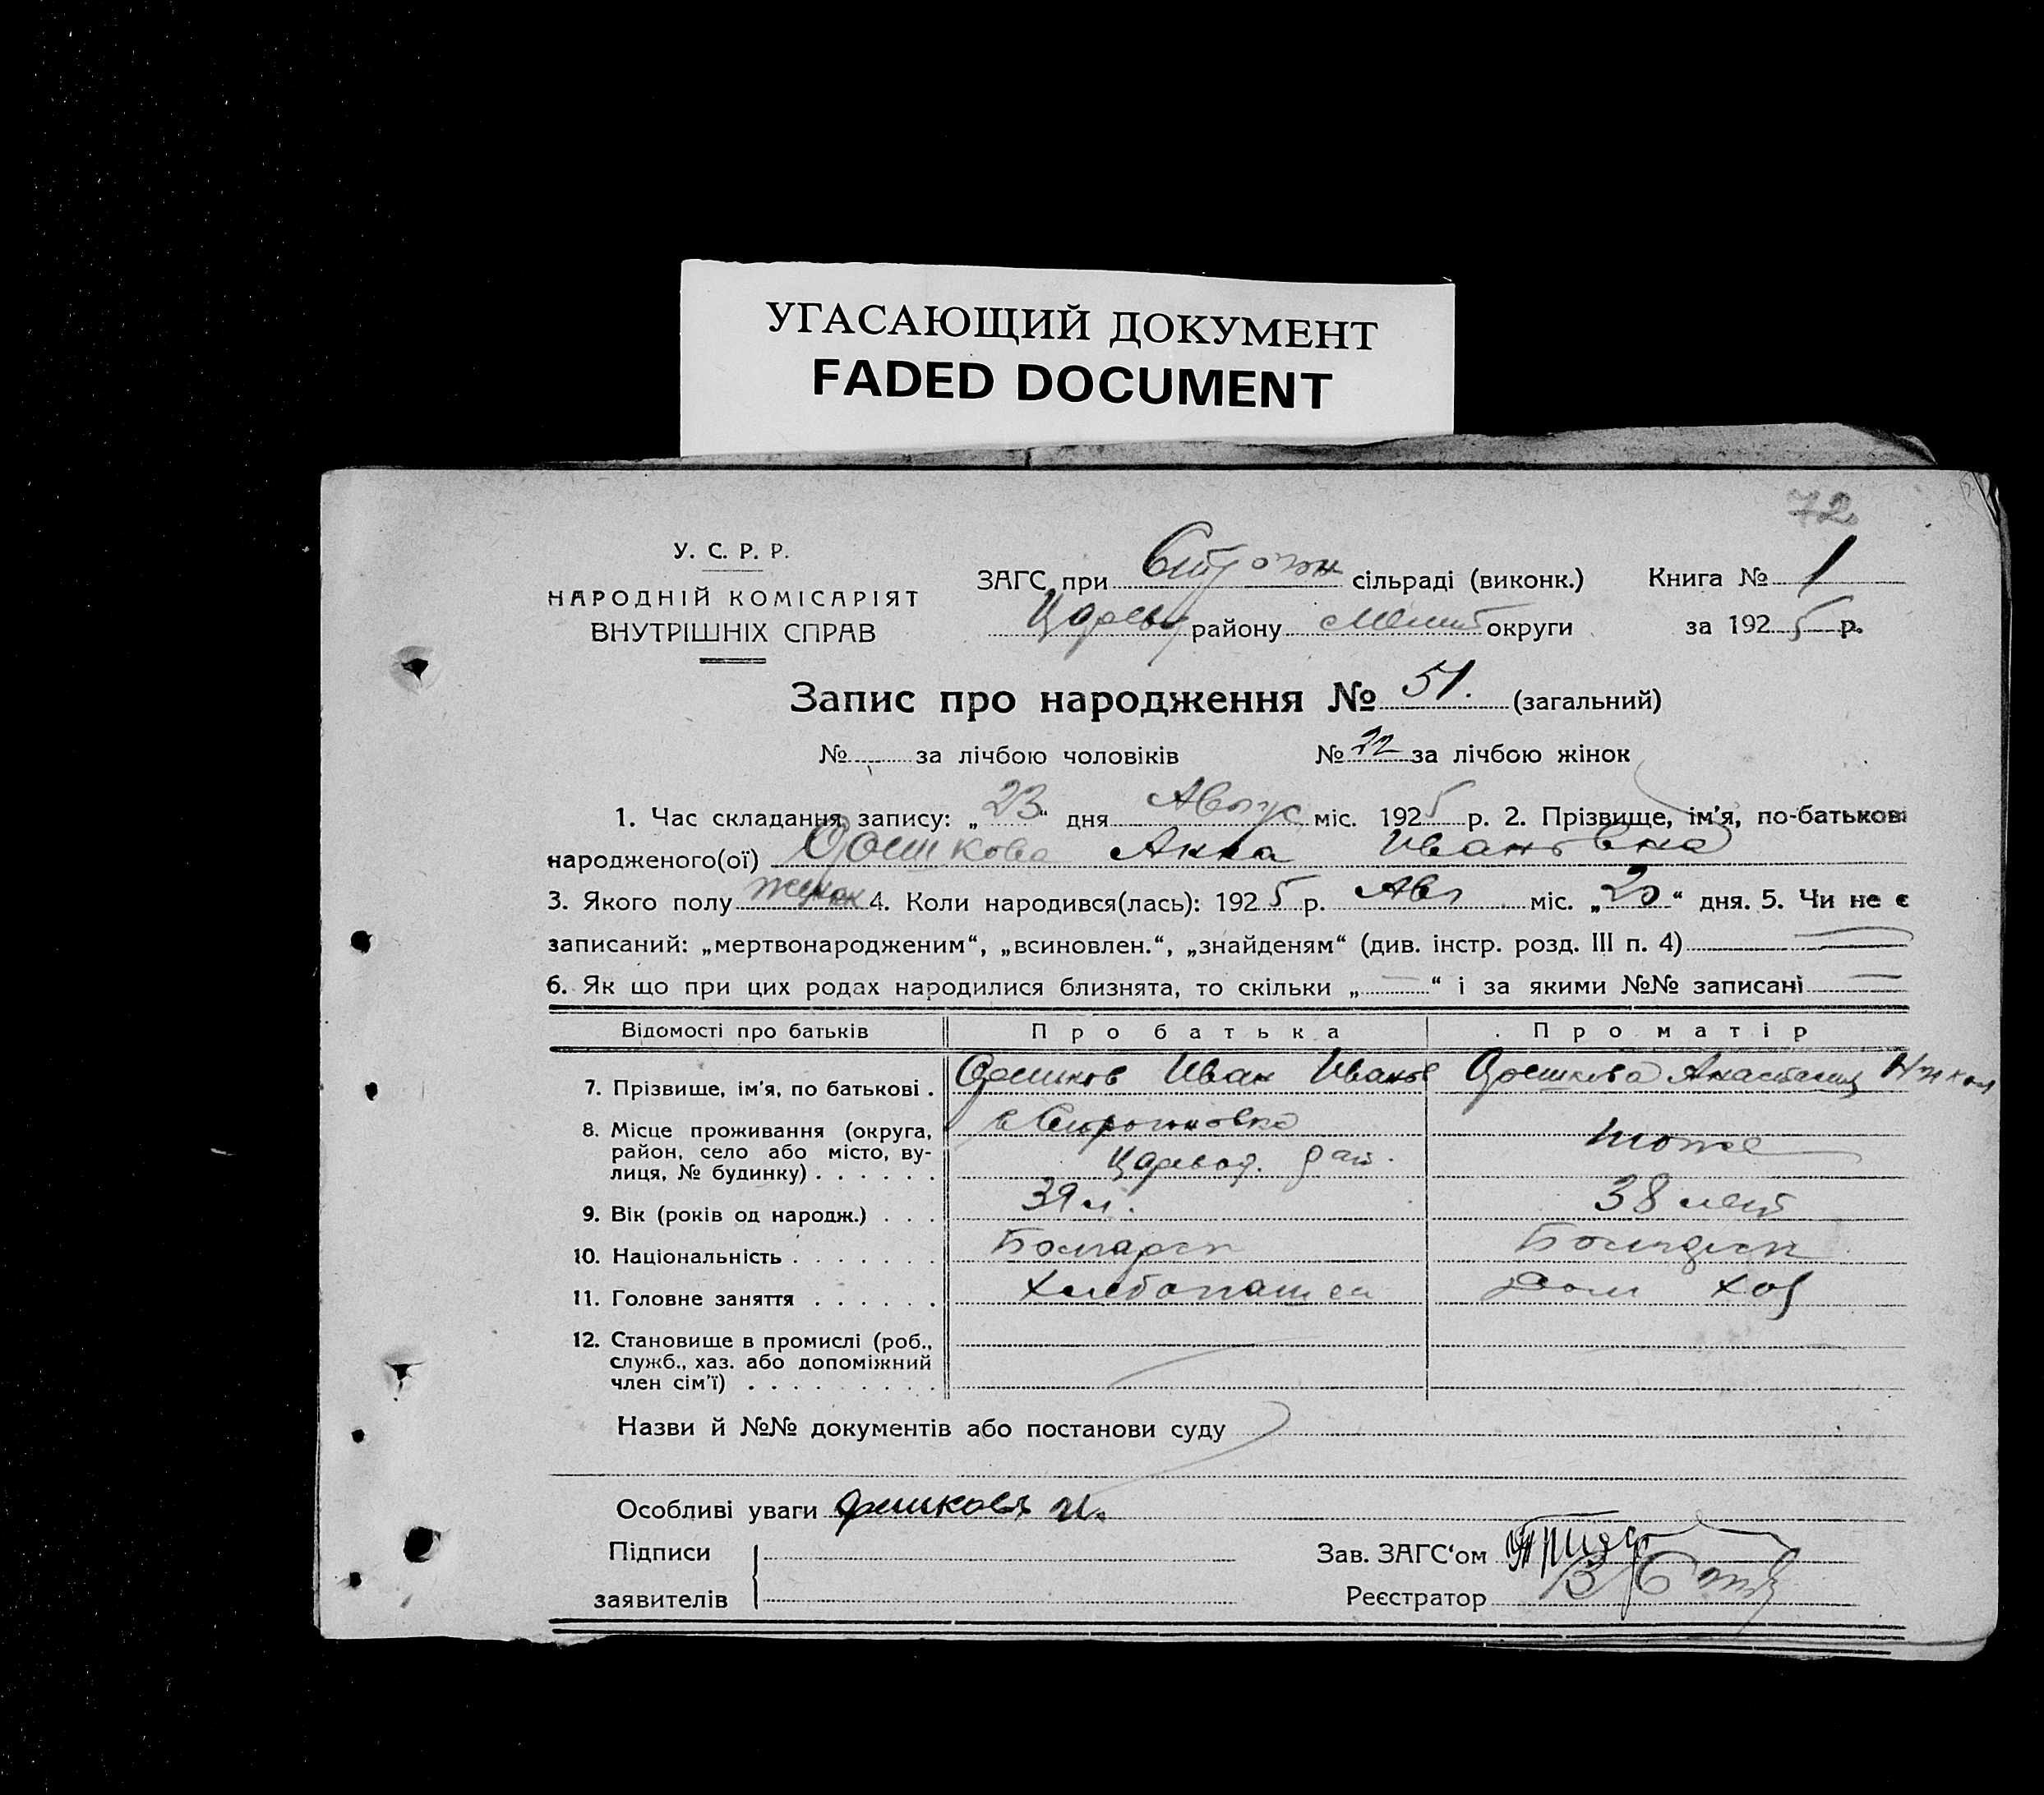 УГАСАЮЩИЙ ДОКУМЕНТ
FADED DOCUMENT
72
У. С. Р. Р.
НАРОДНІЙ КОМІСАРІЯТ
ВНУТРІШНІХ СПРАВ
ЗАГС при Строган сільраді (виконк.) Книга № 1
Царевод району Мелит округи за 1925 р.
Запис про народження № 51. (загальний)
№ за лічбою чоловіків № 22 за лічбою жінок
1. Час складання запису: „23“ дня Август міс. 1925 р. 2. Прізвище, ім'я, по-батькові
народженого(ої) Анна Ивановна
3. Якого полу 4. Коли народився(лась): 1925 р. Авг міс. „20“ дня. 5. Чи не є
записаний: „мертвонародженим“, „всиновлен.“, „знайденям“ (див. інстр. розд. III п. 4)
6. Як що при цих родах народилися близнята, то скільки „—“ і за якими №№ записані —
Відомості про батьків Про батька Про матір
7. Прізвище, ім'я, по батькові . Иван Иванов Анастасия Никол
8. Місце проживання (округа,
район, село або місто, ву-
лиця, № будинку) . . . . . .
с Строгоновка
Царевод. рай.
тоже
9. Вік (років од народж.) . . . 39 л. 38 лет
10. Національність . . . . . . . Болгарск Болгарск
11. Головне заняття . . . . . . Хлебопашец Дом хоз
12. Становище в промислі (роб.,
служб., хаз. або допоміжний
член сім'ї) . . . . . . . . .
Назви й №№ документів або постанови суду
Особливі уваги
Підписи
заявителів
Зав. ЗАГС'ом
Реєстратор